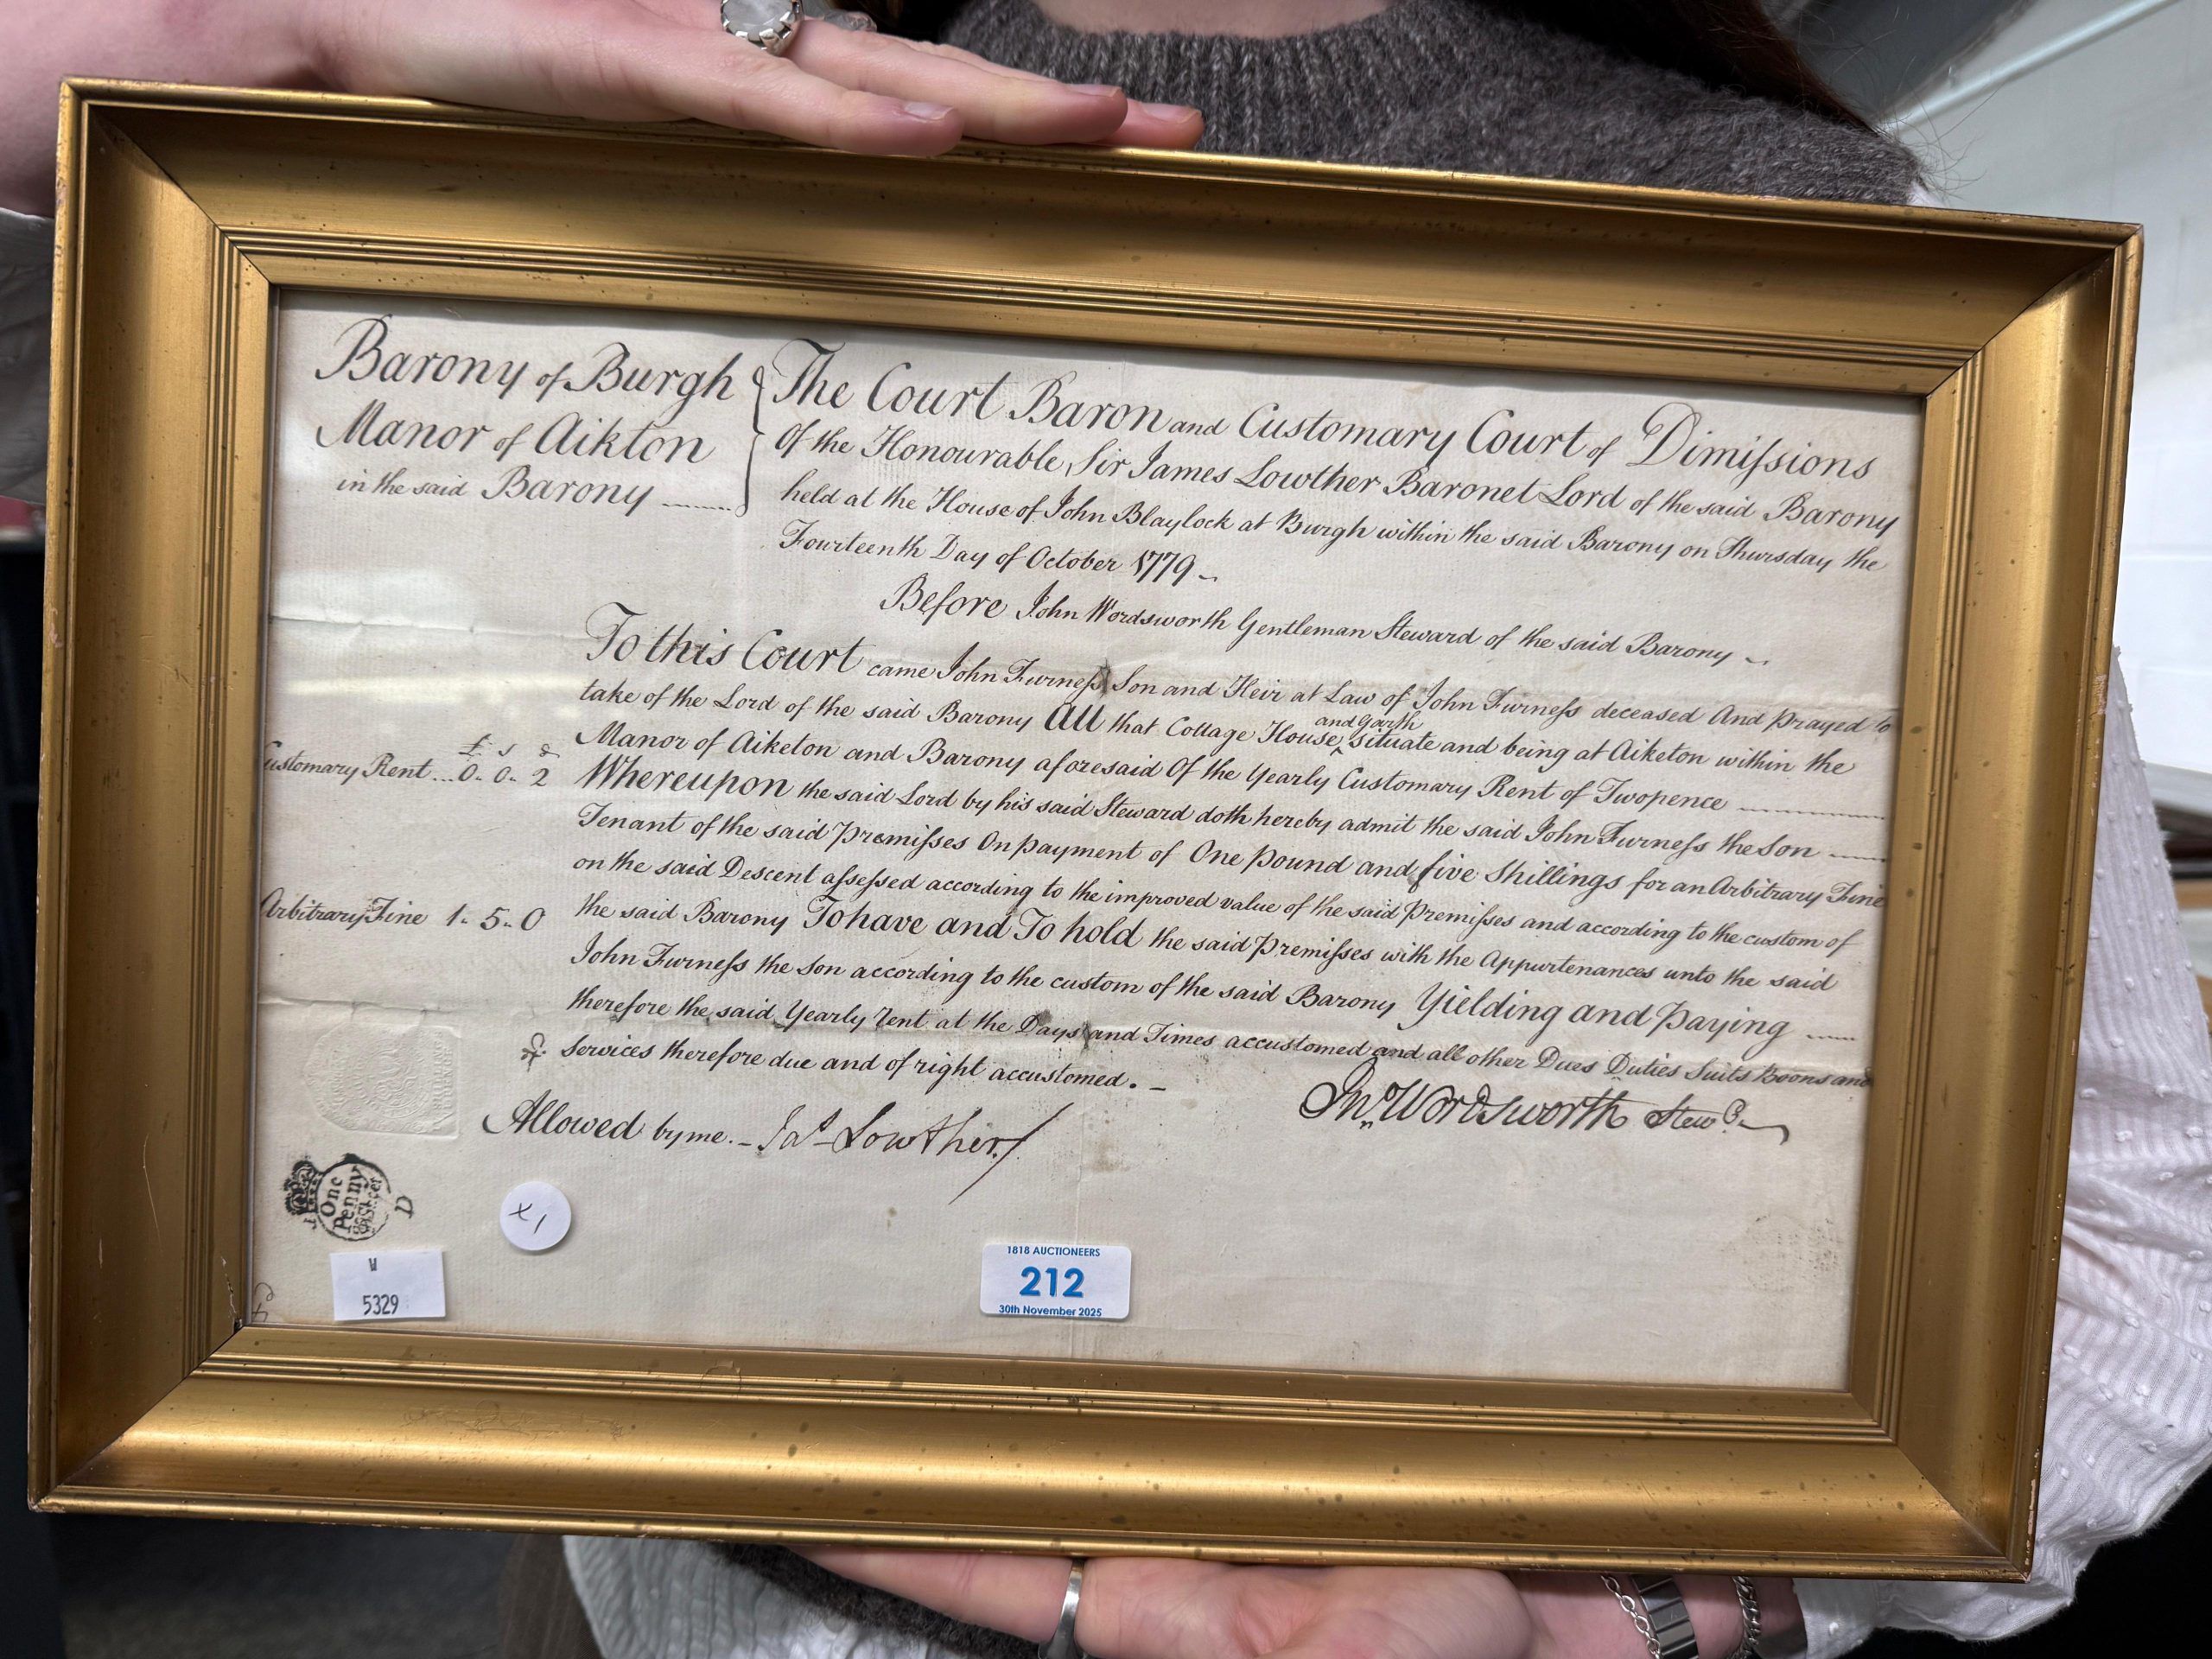 Barony of Burgh
Manor of Aikton
in the said Barony
The Court Baron and Customary Court of Dimissions
Of the Honourable Sir James Lowther Baronet Lord of the said Barony
held at the House of John Blaylock at Burgh within the said Barony on Thursday the
Fourteenth Day of October 1779
Before John Wordsworth Gentleman Steward of the said Barony
To this Court came John Furness Son and Heir at Law of John Furness deceased And prayed to
take of the Lord of the said Barony All that Cottage House and Garth situate and being at Aiketon within the
Manor of Aiketon and Barony aforesaid Of the Yearly Customary Rent of Twopence
£ s d
Customary Rent... 0.. 0.. 2
Whereupon the said Lord by his said Steward doth hereby admit the said John Furness the Son
Tenant of the said Premisses On payment of One pound and five Shillings for an Arbitrary Fine
on the said Descent assessed according to the improved value of the said Premisses and according to the custom of
Arbitrary Fine 1.. 5.. 0
the said Barony To have and To hold the said Premisses with the Appurtenances unto the said
John Furness the Son according to the custom of the said Barony Yielding and Paying
therefore the said Yearly Rent at the Days and Times accustomed and all other Dues Duties Suits Boons and
Services therefore due and of right accustomed.
Allowed by me. Jas Lowther
Jno. Wordsworth Stewd.
One
Penny
D
x1
W
5329
1818 AUCTIONEERS
212
30th November 2025